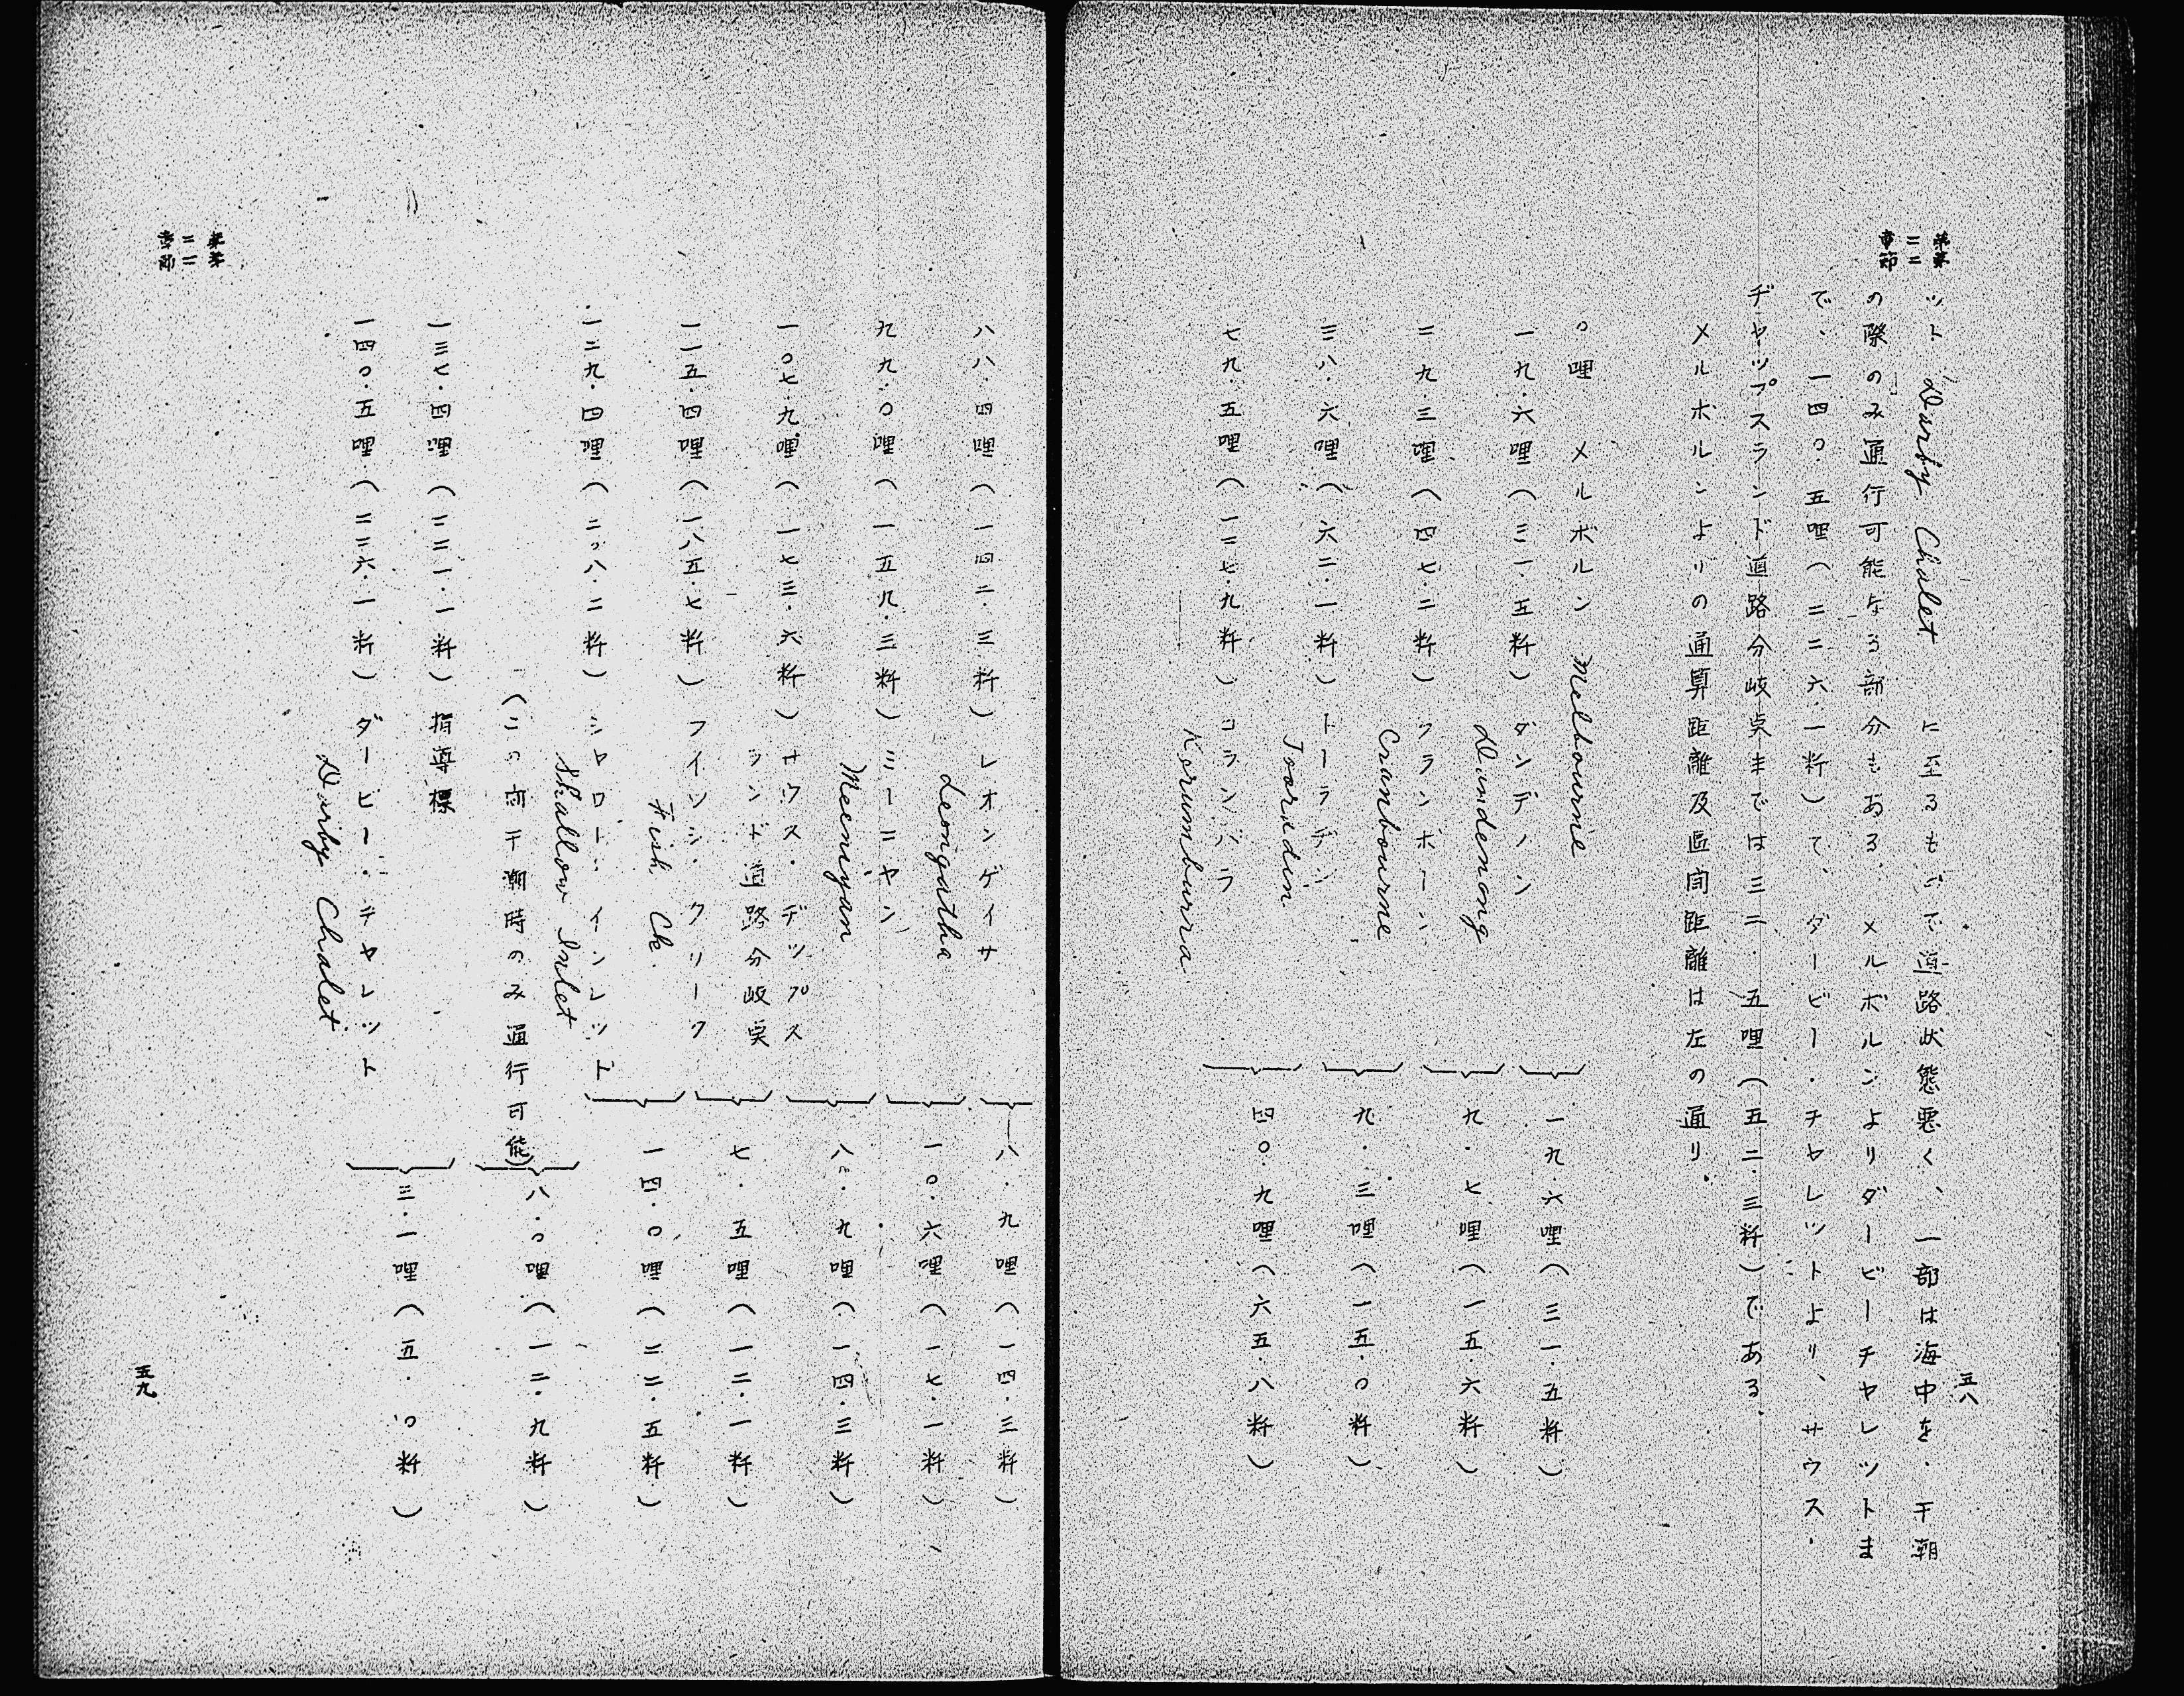 第二章
第二節
五八
ット Darby Chalet に至るもので道路状態悪く、一部は海中を、干潮
の際のみ通行可能なる部分もある。メルボルンよりダービーチヤレットま
で、一四〇.五哩(二二六.一粁)で、ダービー・チヤレットより、サウス・
ヂヤップスランド道路分岐点までは三二.五哩(五二.三粁)である。
メルボルンよりの通算距離及區间距離は左の通り。
〇哩 メルボルン Melbourne
一九.六哩(三一.五粁)ダンデノン
Dandenong
二九.三哩(四七.二粁)クランボーン
Cranbourne
三八.六哩(六二.一粁)トーラヂン
Tooradin
七九.五哩(一二七.九粁)コランバラ
Korumburra
一九.六哩(三一.五粁)
九.七哩(一五.六粁)
九.三哩(一五.〇粁)
四〇.九哩(六五.八粁)
八八.四哩(一四二.三粁)レオンゲイサ
Leongatha
九九.〇哩(一五九.三粁)ミーニヤン
Meeniyan
一〇七.九哩(一七三.六粁)サウス・デップス
ランド道路分岐点
一一五.四哩(一八五.七粁)フイッシ・クリーク
Fish Ck
一二九.四哩(二〇八.二粁)シャロー・インレット
Shallow Inlet
(この间干潮時のみ通行可能)
一三七.四哩(二二一.一粁)指導標
一四〇.五哩(二二六.一粁)ダービー・チャレット
Darby Chalet
八.九哩(一四.三粁)
一〇.六哩(一七.一粁)
八.九哩(一四.三粁)
七.五哩(一二.一粁)
一四.〇哩(二二.五粁)
八.〇哩(一二.九粁)
三.一哩(五.〇粁)
第二章
第二節
五九